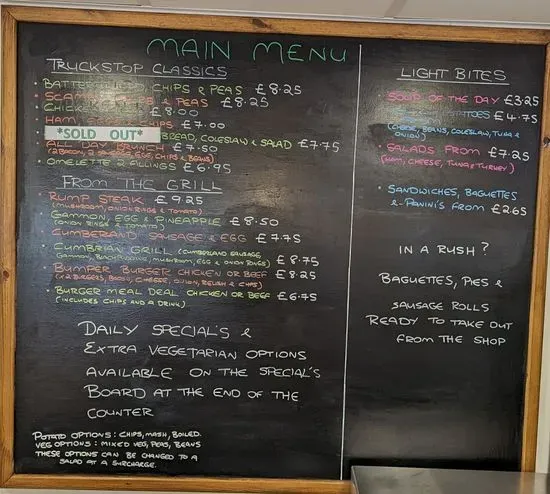 MAIN MENU
TRUCKSTOP CLASSICS
BATTERED CHIPS & PEAS £8.25
CHIPS & PEAS £8.25
CHICKEN £8.00
HAM CHIPS £7.00
*SOLD OUT* BREAD, COLESLAW & SALAD £7.75
ALL DAY BRUNCH £7.50
(2 BACON, 2 SAUSAGE, EGG, CHIPS & BEANS)
OMELETTE 2 FILLINGS £6.95
FROM THE GRILL
RUMP STEAK £9.25
(MUSHROOM, ONION RINGS & TOMATO)
GAMMON, EGG & PINEAPPLE £8.50
(ONION RINGS & TOMATO)
CUMBERLAND SAUSAGE & EGG £7.75
CUMBRIAN GRILL (CUMBERLAND SAUSAGE
GAMMON, BLACK PUDDING, MUSHROOM, EGG & ONION RINGS) £8.75
BUMPER BURGER CHICKEN OR BEEF £8.25
(X2 BURGERS, BACON, CHEESE, ONION, RELISH & CHIPS)
BURGER MEAL DEAL CHICKEN OR BEEF £6.75
(INCLUDES CHIPS AND A DRINK)
DAILY SPECIAL'S &
EXTRA VEGETARIAN OPTIONS
AVAILABLE ON THE SPECIAL'S
BOARD AT THE END OF THE
COUNTER
POTATO OPTIONS: CHIPS, MASH, BOILED.
VEG OPTIONS: MIXED VEG, PEAS, BEANS
THESE OPTIONS CAN BE CHANGED TO A
SALAD AT A SURCHARGE.
LIGHT BITES
SOUP OF THE DAY £3.25
POTATOES £4.75
(CHEESE, BEANS, COLESLAW, TUNA &
ONION)
SALADS FROM £7.25
(HAM, CHEESE, TUNA & TURKEY)
SANDWICHES, BAGUETTES
& PANINI'S FROM £2.65
IN A RUSH?
BAGUETTES, PIES &
SAUSAGE ROLLS
READY TO TAKE OUT
FROM THE SHOP